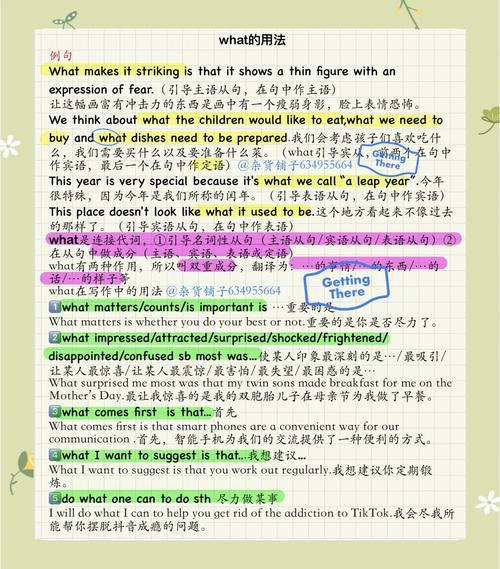 what的用法
例句
What makes it striking is that it shows a thin figure with an
expression of fear.（引导主语从句，在句中作主语）
让这幅画富有冲击力的东西是画中有一个瘦弱身影，脸上表情恐怖。
We think about what the children would like to eat,what we need to
buy and what dishes need to be prepared.我们会考虑孩子们喜欢吃什
么，我们需要买什么以及要准备什么菜。（what引导宾从，前两个在句中
作宾语，最后一个在句中作定语）@杂货铺子634955664
Getting
There
This year is very special because it's what we call “a leap year”.今年
很特殊，因为今年是我们所称的闰年。（引导表语从句，在句中作宾语）
This place doesn't look like what it used to be.这个地方看起来不像过去
的那样了。（引导宾语从句，在句中作表语）
what是连接代词，①引导名词性从句（主语从句/宾语从句/表语从句）②
在从句中做成分（主语、宾语、表语或定语）
what有两种作用，所以叫双重成分，翻译为：…的事情/…的东西/…的
话/…的样子等
what在写作中的用法 @杂货铺子634955664
Getting
There
1 what matters/counts/is important is …重要的是
What matters is whether you do your best or not.重要的是你是否尽力了。
2 what impressed/attracted/surprised/shocked/frightened/
disappointed/confused sb most was...使某人印象最深刻的是…/最吸引/
让某人最惊喜/让某人最震惊/最害怕/最失望/最困惑的是…
What surprised me most was that my twin sons made breakfast for me on the
Mother's Day.最让我惊喜的是我的双胞胎儿子在母亲节为我做了早餐。
3 what comes first is that...首先
What comes first is that smart phones are a convenient way for our
communication .首先，智能手机为我们的交流提供了一种便利的方式。
4 what I want to suggest is that...我想建议...
What I want to suggest is that you work out regularly.我想建议你定期锻
炼。
5 do what one can to do sth 尽力做某事
I will do what I can to help you get rid of the addiction to TikTok.我会尽我所
能帮你摆脱抖音成瘾的问题。